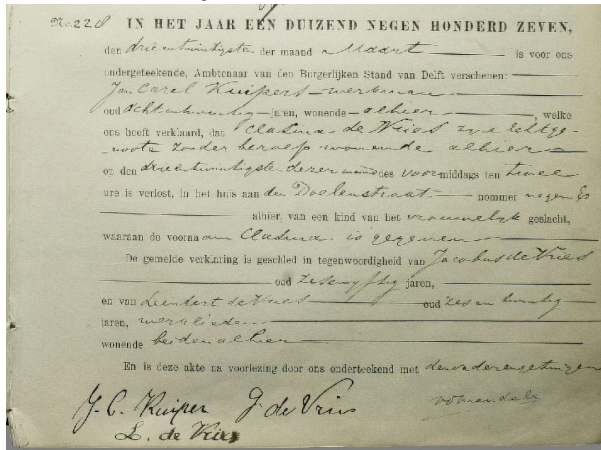 No. 228 IN HET JAAR EEN DUIZEND NEGEN HONDERD ZEVEN,
den drieentwintigste der maand Maart is voor ons
ondergeteekende, Ambtenaar van den Burgerlijken Stand van Delft verschenen:
Jan Carel Kuipers werkman
oud achtentwintig jaren, wonende alhier, welke
ons heeft verklaard, dat Clasina de Vries zijne echtge-
noote zonder beroep wonende alhier
op den drieentwintigste dezer maand des voormiddags ten twee
ure is verlost, in het huis aan den Doelenstraat nommer negen
alhier, van een kind van het vrouwelijk geslacht,
waaraan de voornaam Clasina is gegeven
De gemelde verklaring is geschied in tegenwoordigheid van Jacobus de Vries
oud zesenvyftig jaren,
en van Leendert de Vries oud zes en twintig
jaren, werklieden
wonende beiden alhier
En is deze akte na voorlezing door ons onderteekend met den vader en getuigen
J. C. Kuiper J. de Vries
L. de Vries